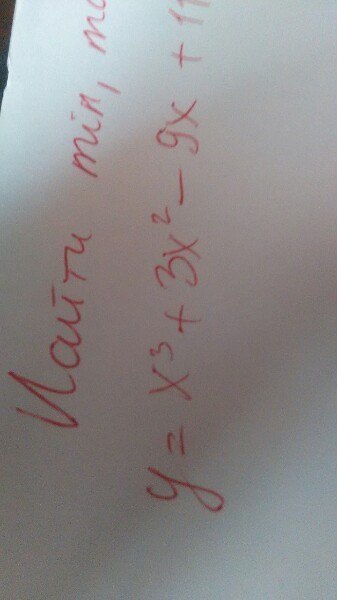 Найти min,
y = x³ + 3x² - 9x + 11